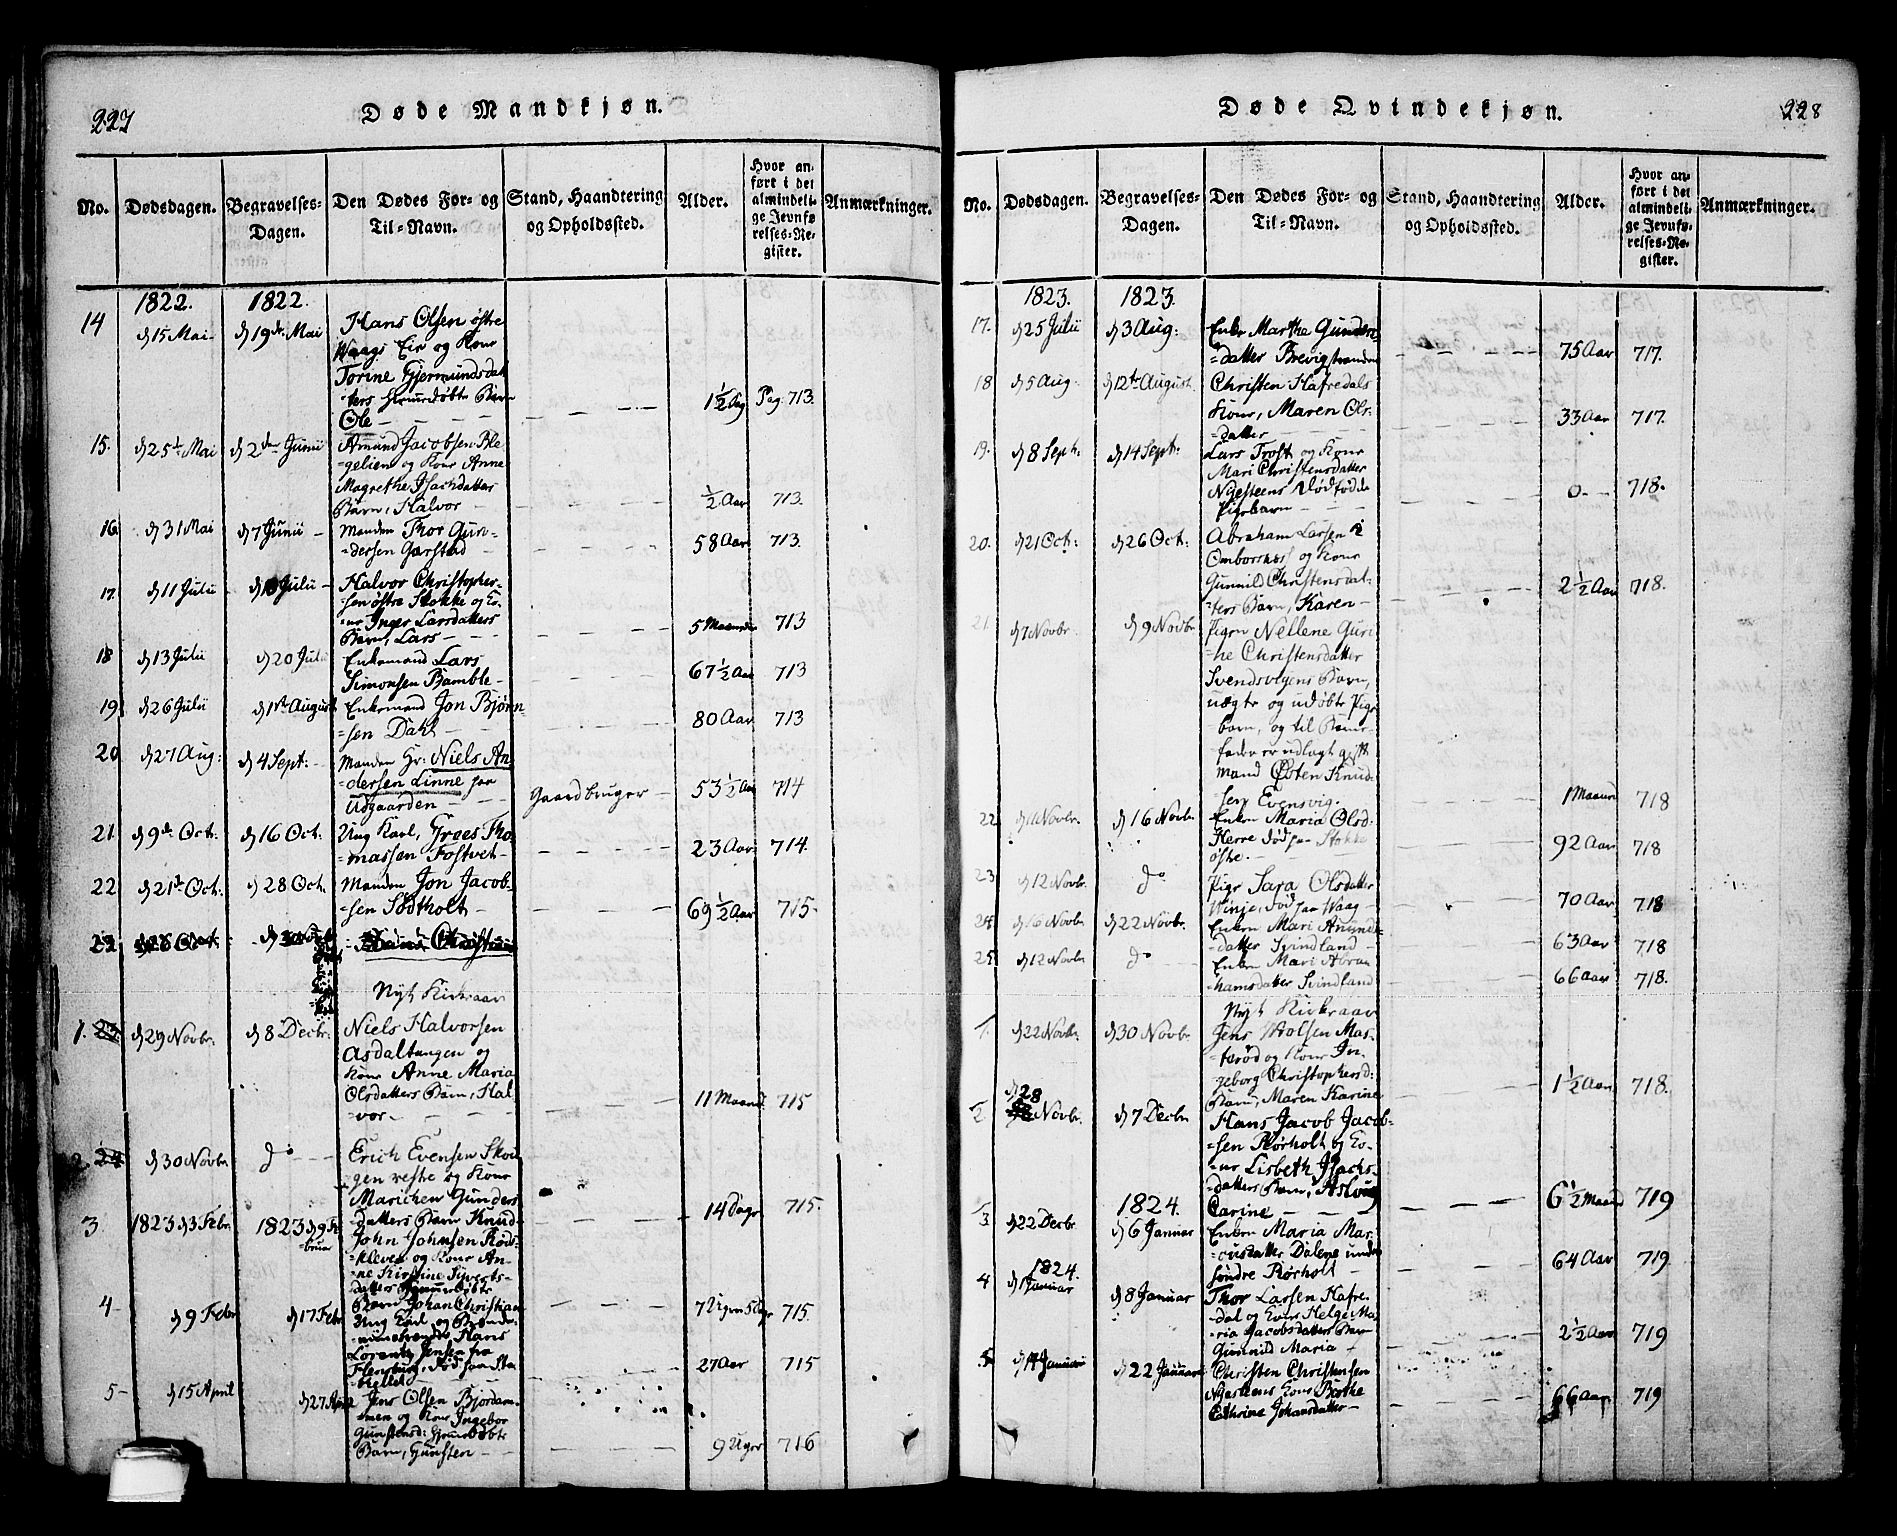 227
Døde Mandkjøn.
No.
Dødsdagen.
Begravelses-
Dagen.
Den Dødes For- og
Til-Navn.
Stand, Haandtering
og Opholdssted.
Alder.
Hvor an-
ført i det
almindeli-
ge Jevnfø-
relses-Re-
gister.
Anmærkninger.
1822. 1822.
14 d 15 Mai d 19de Mai Hans Olsen østre
Waags Eie og Kone
Torine Gjermundsdat
ters hjemedøbte Barn
Ole 1½ Dag Pag. 713.
15. d 25de Mai d 2den Junii Amund Jacobsen Ble
gelien og Kone Anne
Magrethe Isachdatters
Barn, Halvor ½ Aar 713.
16. d 31 Mai d 7 Junii Manden Thor Gun-
dersen Garstad 58 Aar 713.
17. d 11 Julii Julii Halvor Christopher-
sen østre Stokke og Ko-
ne Inger Larsdatters
Barn, Lars 5 Maaneder 713
18 d 13 Julii d 20 Julii Enkemand Lars
Simonsen Bamble 67½ Aar 713
19 d 26 Julii d 1ste August Enkemand Jon Bjørn-
sen Dahl 80 Aar 713
20 d 27 Aug: d 4 Sept: Manden Hr: Niels An
dersen Linne paa
Udgaarden Gaardbruger 53½ Aar 714
21 d 9de Oct: d 16 Oct: Ung Karl, Graes Tho
massen Fostvet 23 Aar 714.
22 d 21de Oct: d 28 Oct. Manden Jon Jacob-
sen Sødtholt 69½ Aar 715
Nyt Kirkeaar
1. d 29 Novbr. d 8 Decbr. Niels Halvorsen
Asdaltangen og
Kone Anne Maria
Olsdatters Barn, Hal
vor 11 Maaned 715
2. d 30 Novbr do Erich Evensen Skou
gen veste og Kone
Marichen Gunders
datters Barn Knud 14 Dage 715.
3 1823 d 3 Febr. 1823 d 9 Fe
bruar John Johnsen Røds-
kleven og Kone An-
ne Kirstine Siverts-
datters hjemmedøbte
Barn Johan Christian 7 Ugen 5 Dage 715.
4 d 9 Febr d 17 Febr Ung Karl og
Hans
Lorentz Jensen fra
Flensburg, død paa Sta
thellet 27 Aar 715
5 d 15 April d 27 April Jens Olsen Bjordam-
men og Kone Ingebor
Gunstensd: hjemedøbte
Barn, Gunsten 9 Uger 716
Døde Qvindekjøn.
228
No.
Dødsdagen.
Begravelses-
Dagen.
Den Dødes For- og
Til-Navn.
Stand, Haandtering
og Opholdssted.
Alder.
Hvor an-
ført i det
almindeli-
ge Jevnfø-
relses-Re-
gister.
Anmærkninger.
1823. 1823.
17. d 25 Julii d 3 Aug: Enke Marthe Gunders-
datter Brevigstranden 75 Aar 717.
18 d 5 Aug: d 12te August. Christen Hafredals
Kone, Maren Ols-
datter 33 Aar 717.
19. d 8 Sept: d 14 Sept: Lars Trost og Kone
Mari Christensdatter
Nysteens Dødfødde
Pigebarn 0 718.
20. d 21 Oct: d 26 Oct: Abraham Larsen
Omborsnes og Kone
Gunnild Christensdat-
ters Barn, Karen 2½ Aar 718.
21 d 7 Novbr. d 9 Novbr Pigen Nellene Guri
ne Christensdatter
Svendsvigens Barn,
uægte og udøbte Pige
barn, og til Barne-
fader er udlagt gift
mand Østen Knud-
sen Evensvig. 1 Maaned 718
22 Novbr. d 16 Novbr Enken Maria Olsd.
Herre død paa Stokke
østre. 92 Aar 718
23 d 12 Novbr. do Pige Sara Olsdatter
Winje, død paa Waag 70 Aar 718
24 d 16 Novbr d 22 Novbr. Enken Mari Amunds-
datter Svindland 63 Aar 718
25 d 12 Novbr do Enken Mari Abra
hamsdatter Svindland 66 Aar 718.
Nyt Kirkeaar
1. d 22 Novbr d 30 Novbr Jens Molsen Mas-
terød og Kone In-
geborg Christophersd:
Barn, Maren Karine 1½ Aar 718.
2 d 28 Novbr. d 7 Decbr Hans Jacob Jacob-
sen Rørholt og Ko-
ne Lisbeth Isachs-
datters Barn, Asloug
Carine 6½ Maaned 719
1824.
3 d 22 Decbr d 6 Januar Enken Maria Mar-
cusdatter Dalene under
søndre Rørholt 64 Aar 719.
1824.
4 d 1 Januar d 8 Januar Thor Larsen Hafre-
dal og Kones Helge Ma
ria Jacobsdatters Barn
Gunnild Maria 2½ Aar 719
5 d 14 Januari d 22 Januari Christen Christensen
Nysteens Kone Berthe
Cathrine Johansdatter 66 Aar 719